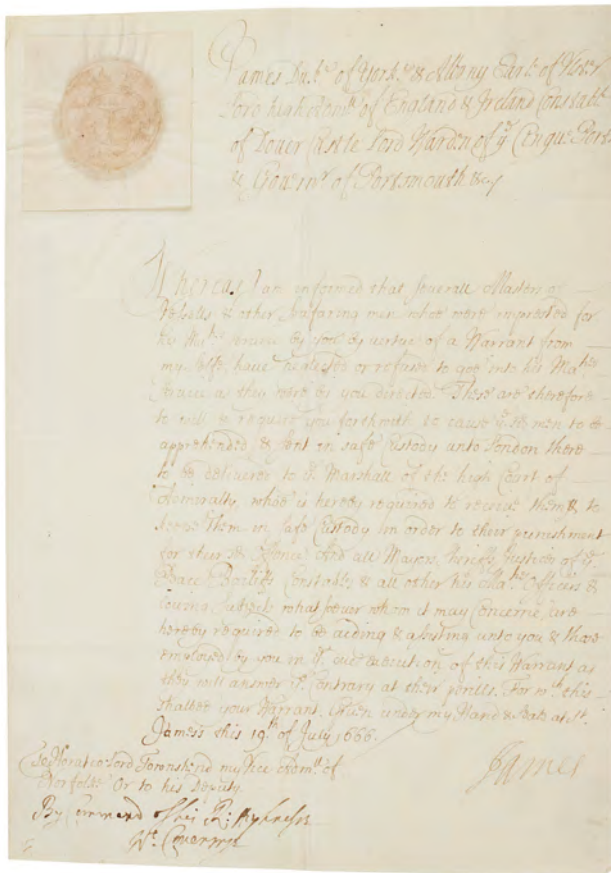 James Duke of Yorke & Albany Earle of Ulster
Lord high Adm.ll of England & Ireland Constable
of Dover Castle Lord Warden of y.e Cinque Ports
& Govern.r of Portsmouth &c
Whereas I am informed that severall Masters of
Vessells & other seafaring men who were impressed for
his Ma.ties service by you by vertue of a Warrant from
my selfe, have neglected or refused to goe into his Ma.ties
service as they were by you directed. These are therefore
to will & require you forthwith to cause y.e s.d men to be
apprehended & sent in safe Custody unto London there
to be delivered to y.e Marshall of the high Court of
Admiralty, who is hereby required to receive them & to
keepe them in safe Custody in order to their punishment
for their s.d Offence And all Mayors, Sheriffs, Justices of y.e
Peace Bayliffs Constables & all other his Ma.ties Officers &
loving Subjects whatsoever whom it may Concerne, are
hereby required to be aiding & assisting unto you & those
employed by you in y.e due execution of this Warrant as
they will answer y.e Contrary at their perills. For w.ch this
shalbe your Warrant. Given under my Hand & Seale at St.
James's this 19.th of July 1666.
James
To Horatio Lord Townshend my Vice Adm.ll of
Norfolke Or to his Deputy
By Command of his R: Highness
W. Coventry